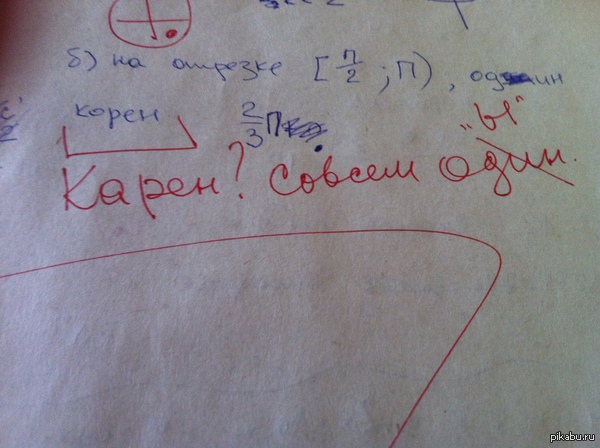 б) на отрезке [π/2 ; π) , один
корен 2/3 π
"Ы"
Карен? Совсем один.
pikabu.ru